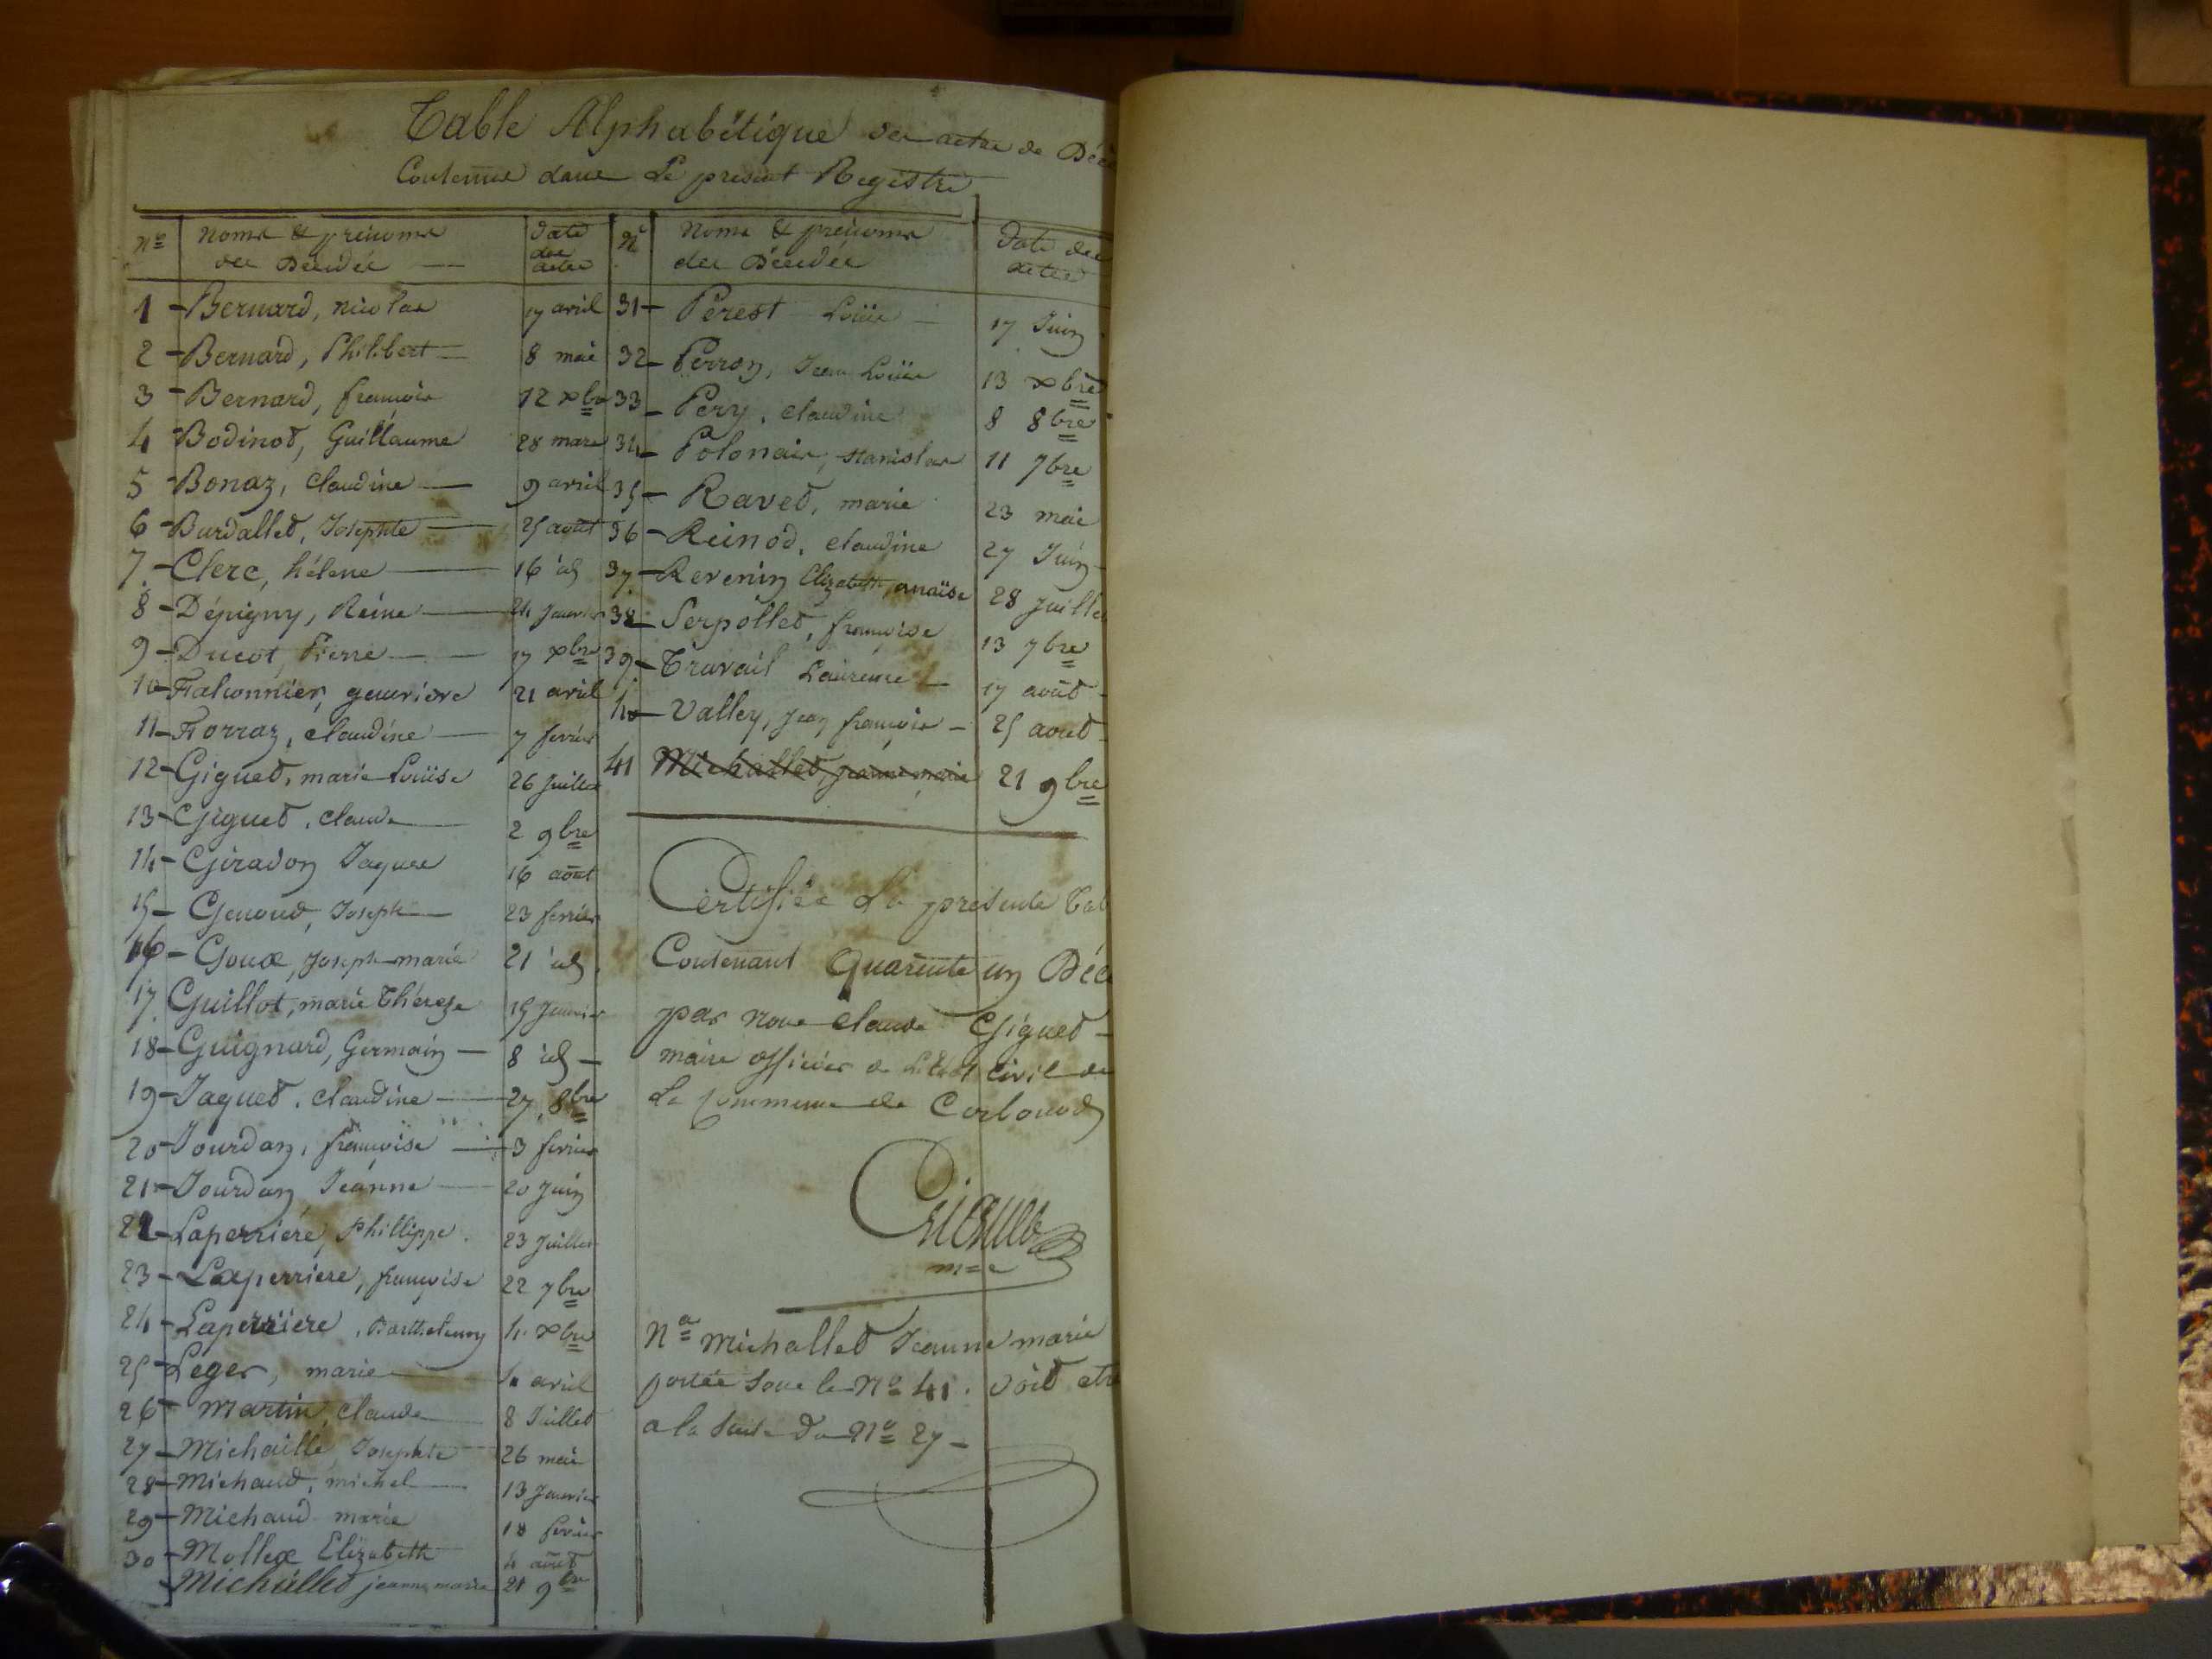 Table Alphabétique des actes de Décè
Contenus dans Le present Registre
Nos
noms & prénoms
des Décédés
date
des
actes
1 - Bernard, nicolas 17 avril
2 - Bernard, Philibert 8 mai
3 - Bernard, francois 12 xbre
4 - Bodinod, Guillaume 28 mars
5 - Bonaz, claudine 9 avril
6 - Burdalled, Josephte 25 août
7. - Clerc, hélene 16 id
8 - Dépigny, Reine 24 janvier
9 - Ducot, Pierre 17 xbre
10 - Falconnier, 21 avril
11 - Forraz, claudine 7 fevrier
12 - Gigued, marie Louise 26 juillet
13 - Gigued, claude 2 9bre
14 - Giradon Jaques 16 août
15 - Genoud, Joseph 23 fevrier
16 - Goux, joseph marie 21 id
17. Guillot, marie Thérèse 15 janvier
18 - Guignard, Germain - 8 id -
19 - Jaqued, claudine 27. 8bre
20 - Jourdan, francoise 3 fevrier
21 - Jourdan Jeanne 20 juin
22 - Laperriere, Phillippe 23 juillet
23 - Laperriere, francoise 22 7bre
24 - Laperriere, Barthelemy 4. xbre
25 - Leger, marie avril
26 - Martin, claude 8 Juillet
27 - Michaille, Josephte 26 mai
28 - Michaud, michel 13 janvier
29 - Michaud marie 18 fevrier
30 - Mollex Elizabeth 4 août
- Michalled jeanne marie 21 9bre
No
noms & prénoms
des Décédés
date des
actes
31 - Perest Louis - 17 Juin
32 - Perron, Jean Louis 13 xbre
33 - Pery, claudine 8 8bre
34 - Polonais, stanislas 11 7bre
35 - Raved, marie 23 mai
36 - Reinod, claudine 27 Juin
37. - Revenin Elizabeth, anaïse 28 juillet
38 - Serpolled, francoise 13 7bre
39 - Travail Laurence 17 août -
40 - Valley, jean francois - 25 août -
41 Michalled, jeanne marie 21 9bre
Certifiée La présente Tab
Contenant quarente un Décè
par nous claude Gigued -
maire officier de L'Etat civil de
La Commune de Corbonod
Gigued
mre
Na Michalled Jeanne marie
portée sous le No 41. doit etre
a la suite du No 27 -